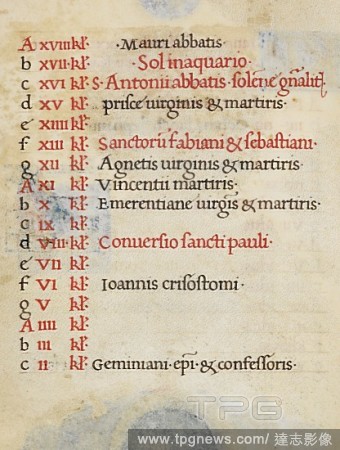 A xviii kl̃· ·Mauri abbatis·
b xvii· kl̃· ·Sol inaquario·
c xvi kl̃· S· Antonii abbatis· solēne gñalit̃
d xv kl̃· prisce uirginis & martiris·
e xiiii kl̃·
f xiii kl̃· Sanctorũ fabiani & sebastiani·
g xii kl̃· Agnetis uirginis & martiris·
A xi kl̃· Vincentii martiris·
b x kl̃· Emerentiane uirgĩs & martiris·
c ix kl̃·
d viii kl̃· Conuersio sancti pauli·
e vii kl̃·
f vi kl̃· Ioannis crisostomi·
g v kl̃·
A iiii kl̃·
b iii kl̃·
c ii kl̃· Geminiani· epĩ· & confessoris·
TPG
www.tpgnews.com/ 達志影像